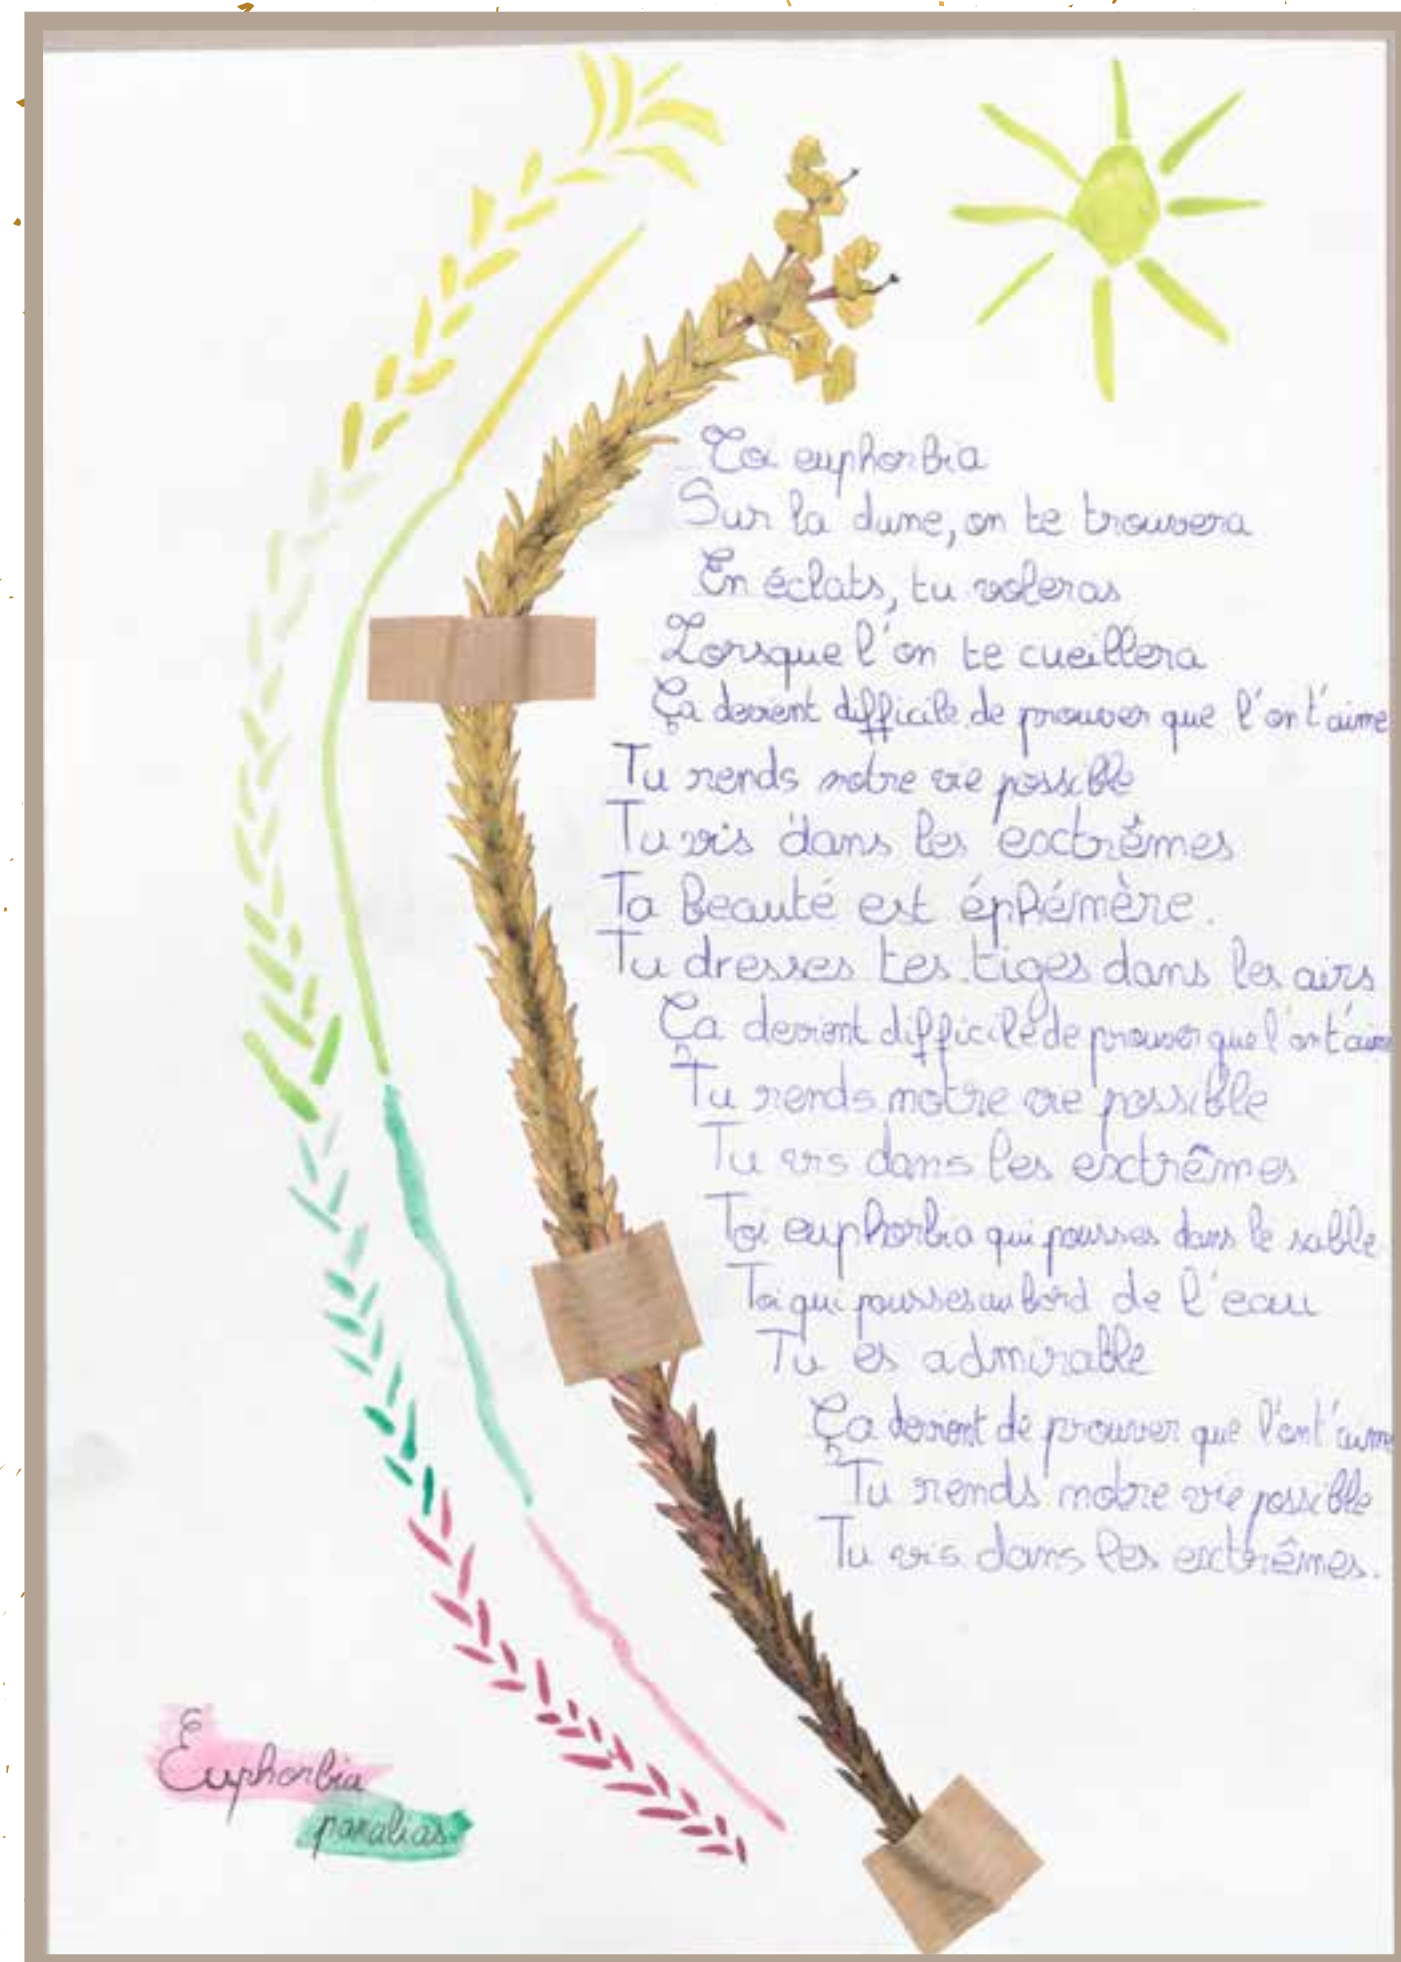 Toi euphorbia
Sur la dune, on te trouvera
En éclats, tu voleras
Lorsque l'on te cueillera
Ça devient difficile de prouver que l'on t'aime
Tu rends notre vie possible
Tu vis dans les extrêmes
Ta beauté est éphémère.
Tu dresses tes tiges dans les airs
Ça devient difficile de prouver que l'on t'aime
Tu rends notre vie possible
Tu vis dans les extrêmes
Toi euphorbia qui pousses dans le sable
Toi qui pousses au bord de l'eau
Tu es admirable
Ça devient de prouver que l'on t'aime
Tu rends notre vie possible
Tu vis dans les extrêmes.
Euphorbia
paralias